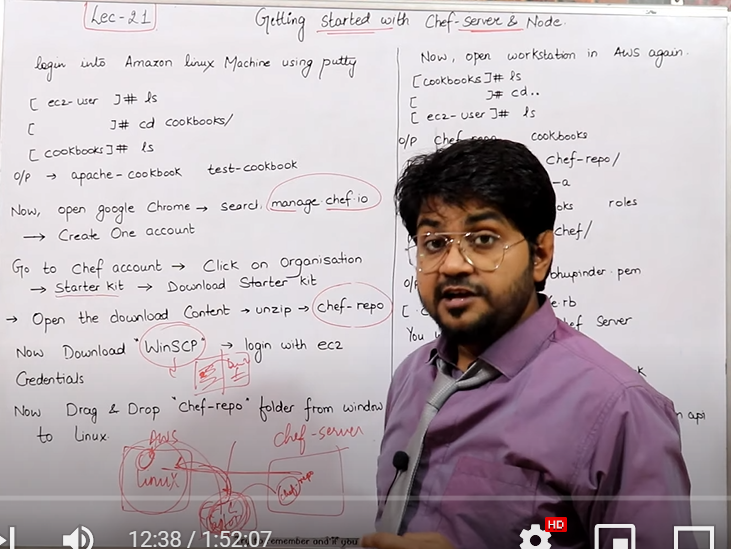 Lec-21
Getting started with Chef-server & Node.
login into Amazon linux Machine using putty
[ ec2-user ]# ls
[ ]# cd cookbooks/
[ cookbooks]# ls
o/p → apache-cookbook test-cookbook
Now, open google Chrome → search. manage.chef.io
→ Create One account
Go to Chef account → Click on Organisation
→ Starter kit → Download Starter kit
→ Open the download Content → unzip → chef-repo
Now Download "WinSCP" → login with ec2
Credentials
Now Drag & Drop "Chef-repo" folder from window
to Linux.
AWS
Linux
chef-server
chef-repo
Now, open workstation in AWS again.
[cookbooks]# ls
[ ]# cd..
[ ec2-user ]# ls
o/p chef-repo cookbooks
chef-repo/
-a
roles
chef/
bhupinder.pem
rb
Server
You
12:38 / 1:52:07
HD
remember and if you